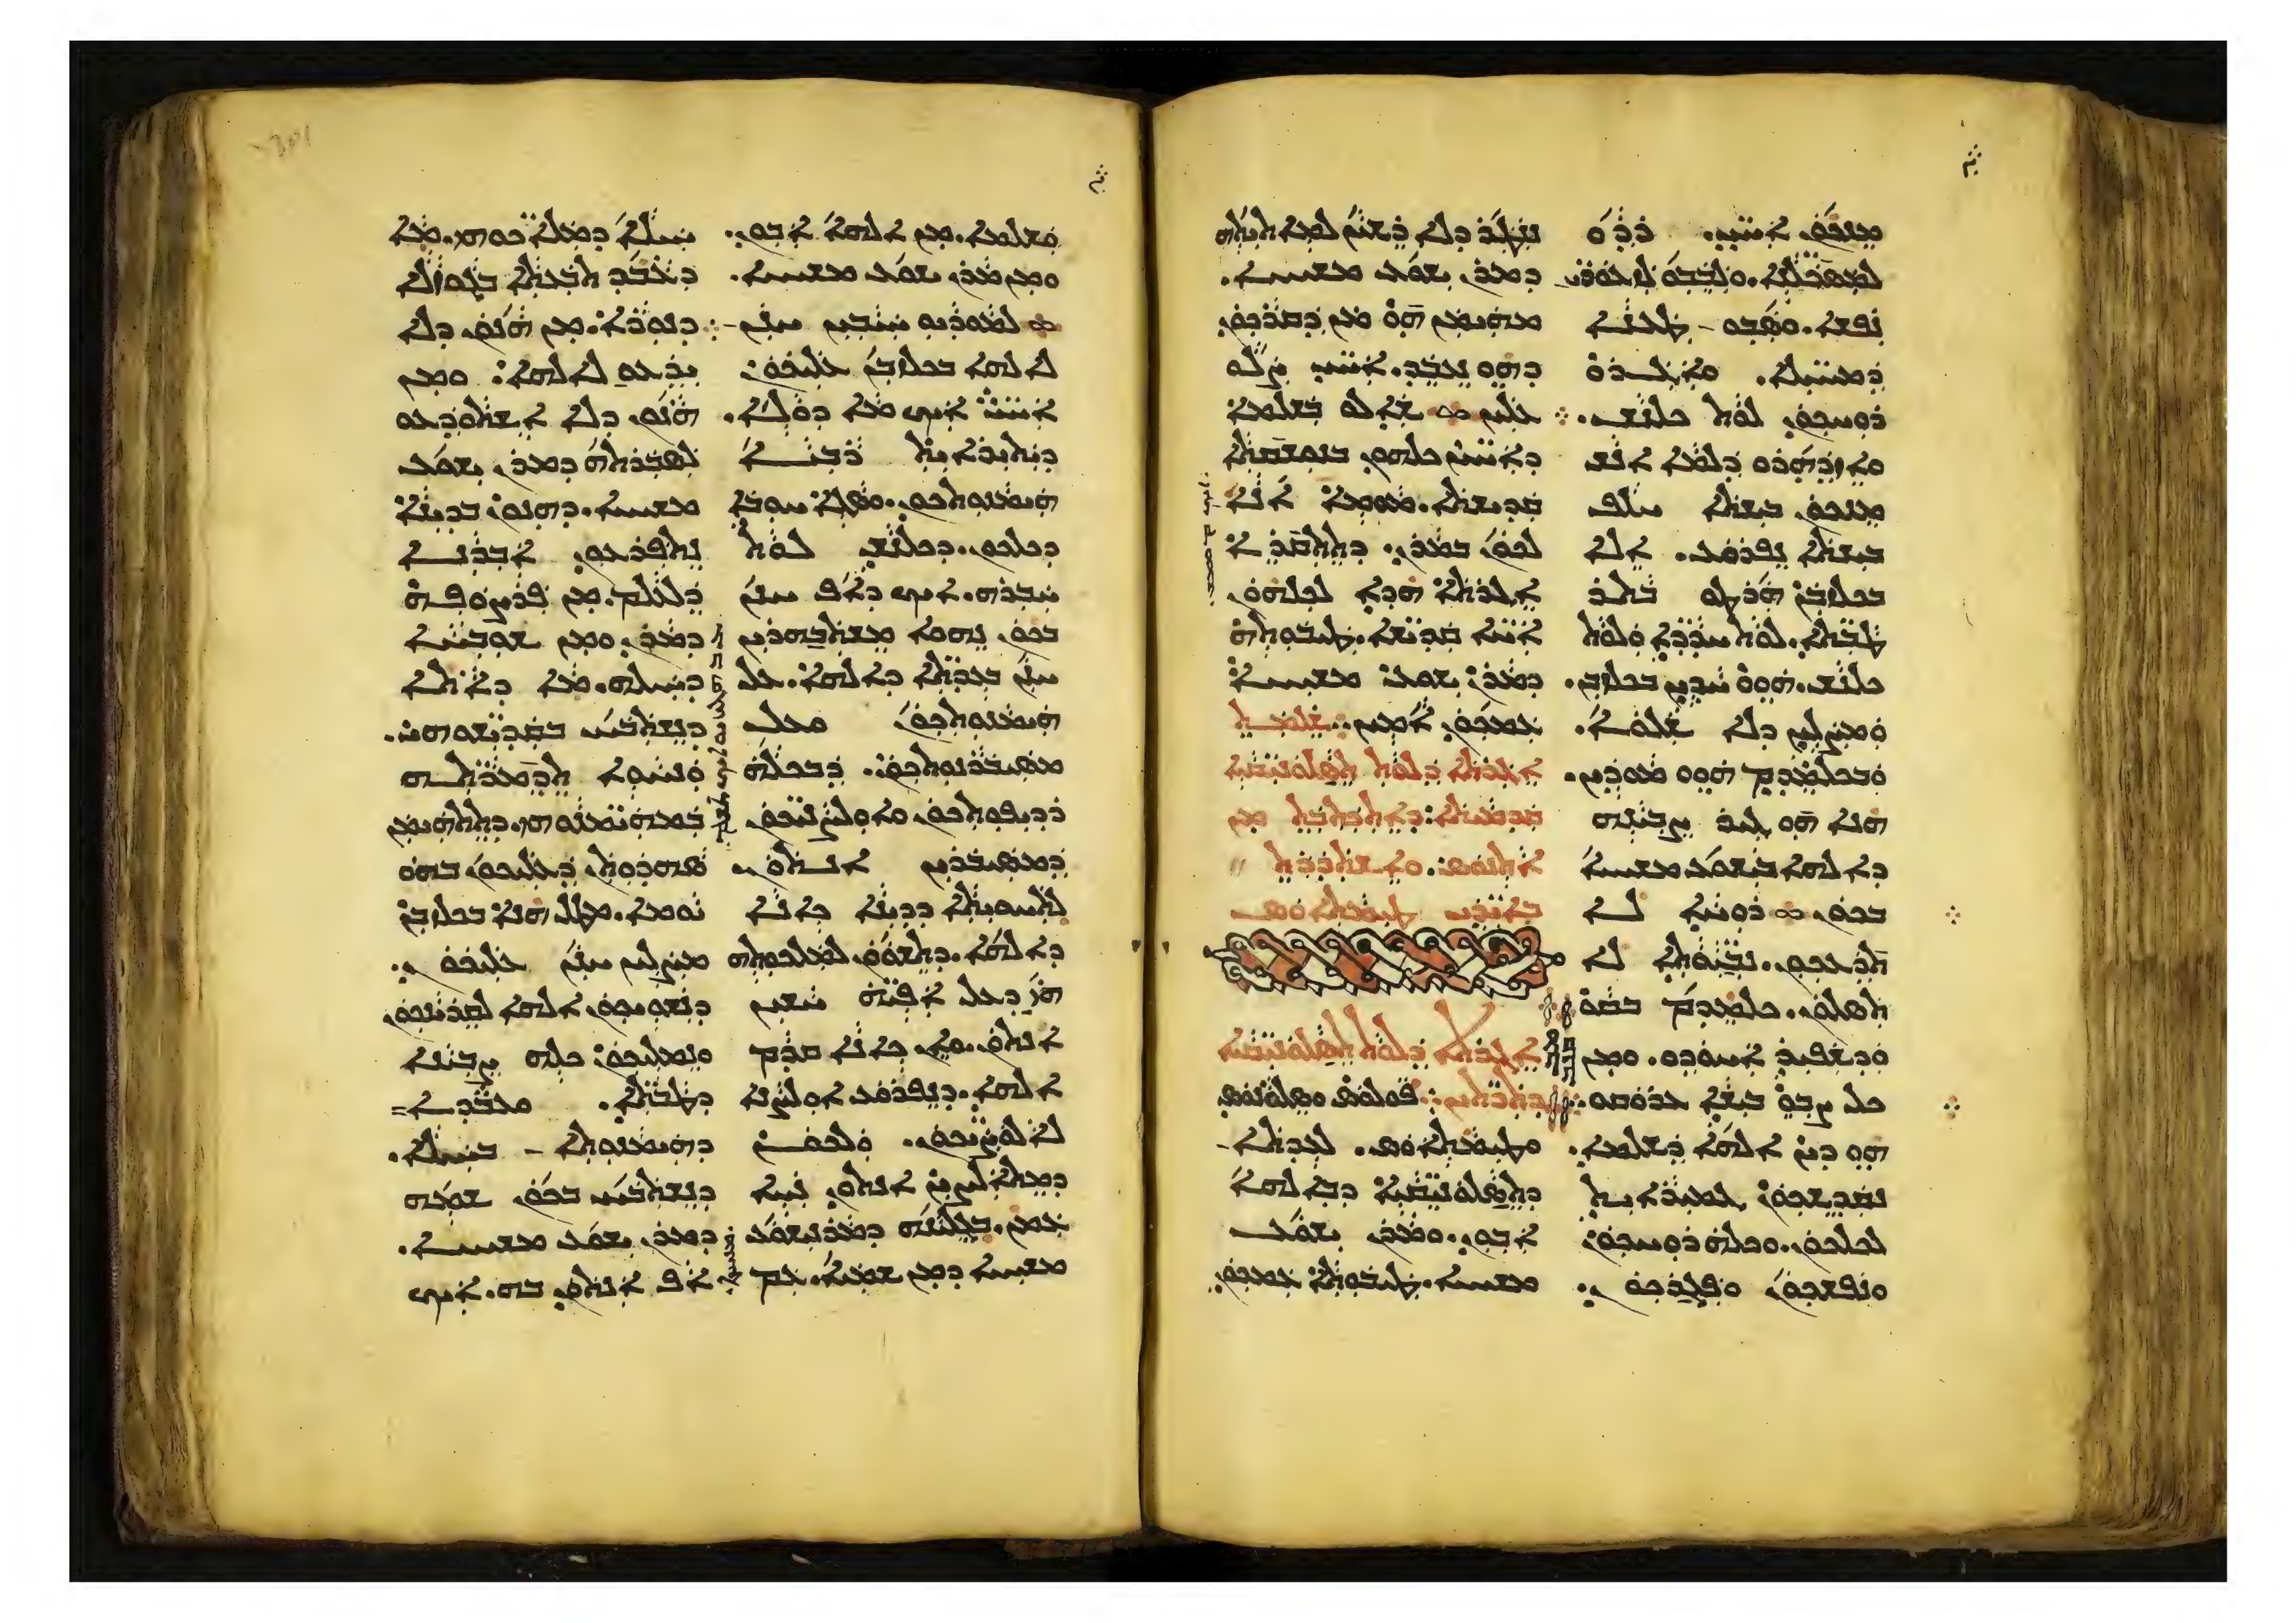 ܡܢܟܘܢ ܐܚܝ̈. ܪܕܘ
ܠܡܣܟ̈ܠܢܐ. ܘܠܒܒܘ ܠܙܥܘܪ̈ܝ
ܢܦܫܐ. ܘܣܒܘ ܛܥܢܐ
ܕܡܚܝ̈ܠܐ. ܘܐܓܪܘ
ܪܘܚܟܘܢ ܠܘܬ ܟܠܢܫ.
ܘܐܙܕܗܪܘ ܕܠܡܐ ܐܢܫ
ܡܢܟܘܢ ܒܝܫܬܐ ܚܠܦ
ܒܝܫܬܐ ܢܦܪܘܥ. ܐܠܐ
ܒܟܠܙܒܢ ܗܪܛܘ ܒܬܪ
ܛܒ̈ܬܐ. ܠܘܬ ܚܕܕ̈ܐ ܘܠܘܬ
ܟܠܢܫ. ܗܘܘ ܚܕܝܢ ܒܟܠܙܒܢ.
ܘܡܨܠܝܢ ܕܠܐ ܫܠܘܐ.
ܘܒܟܠܡܕܡ ܗܘܘ ܡܘܕܝܢ.
ܗܢܐ ܗܘ ܓܝܪ ܨܒܝܢܗ
ܕܐܠܗܐ ܒܝܫܘܥ ܡܫܝܚܐ
ܒܟܘܢ ܪܘܚܐ ܠܐ
ܬܕܥܟܘܢ. ܢܒܝܘ̈ܬܐ ܠܐ
ܬܣܠܘܢ. ܟܠܡܕܡ ܒܩܘ
ܘܕܫܦܝܪ ܐܚܘܕܘ. ܘܡܢ
ܟܠ ܨܒܘ ܒܝܫܐ ܥܪܘܩܘ.
ܗܘ ܕܝܢ ܐܠܗܐ ܕܫܠܡܐ.
ܢܩܕܫܟܘܢ ܓܡܝܪܐܝܬ
ܠܟܠܟܘܢ. ܘܟܠܗ ܪܘܚܟܘܢ
ܘܢܦܫܟܘܢ ܘܦܓܪܟܘܢ.
ܢܛܪ ܕܠܐ ܪܫܝܢ ܠܡܐܬܝܬܗ
ܕܡܪܢ ܝܫܘܥ ܡܫܝܚܐ.
ܡܗܝܡܢ ܗܘ ܡܢ ܕܩܪܟܘܢ
ܕܗܘ ܢܥܒܕ. ܐܚܝ̈ ܨܠܘ
ܥܠܝܢ ܫܐܠܘ ܒܫܠܡܐ
ܕܐܚ̈ܝܢ ܟܠܗܘܢ ܒܢܘܫܩܬܐ
ܩܕܝܫܬܐ. ܡܘܡܐ ܐܢܐ
ܠܟܘܢ ܒܡܪܢ. ܕܬܬܩܪܐ
ܐܓܪܬܐ ܗܕܐ ܠܟܠܗܘܢ
ܐܚ̈ܐ ܩܕܝܫ̈ܐ. ܛܝܒܘܬܗ
ܕܡܪܢ ܝܫܘܥ ܡܫܝܚܐ
ܥܡܟܘܢ ܐܡܝܢ. ܫܠܡܬ
ܐܓܪܬܐ ܕܠܘܬ ܬܣܠܘܢܝܩܝܐ
ܩܕܡܝܬܐ: ܕܐܬܟܬܒܬ ܡܢ
ܐܬܢܘܣ. ܘܐܫܬܕܪܬ
ܒܐܝܕܝ ܛܝܡܬܐܘܣ
ܐܓܪܬܐ ܕܠܘܬ ܬܣܠܘܢܝܩܝܐ
ܕܬܪ̈ܬܝܢ. ܦܘܠܘܣ ܘܣܠܘܢܘܣ
ܘܛܝܡܬܐܘܣ. ܠܥܕܬܐ
ܕܬܣܠܘܢܝܩܝܐ ܕܒܐܠܗܐ
ܐܒܘܢ. ܘܡܪܢ ܝܫܘܥ
ܡܫܝܚܐ. ܛܝܒܘܬܐ ܥܡܟܘܢ
ܘܫܠܡܐ. ܡܢ ܐܠܗܐ ܐܒܘܢ.
ܘܡܢ ܡܪܢ ܝܫܘܥ ܡܫܝܚܐ.
ܠܡܘܕܝܘ ܚܝܒܝܢ ܚܢܢ
ܠܐܠܗܐ ܒܟܠܙܒܢ ܥܠܝܟܘܢ
ܐܚܝ̈ ܐܝܟ ܡܐ ܕܘܠܐ.
ܕܝܬܝܪܐܝܬ ܪܒܝܐ
ܗܝܡܢܘܬܟܘܢ. ܘܣܓܐ ܚܘܒܐ
ܕܟܠܟܘܢ. ܕܟܠܢܫ ܠܘܬ
ܚܒܪܗ. ܐܝܟ ܕܐܦ ܚܢܢ
ܒܟܘܢ ܢܗܘܐ ܡܫܬܒܗܪܝܢ
ܚܢܢ ܒܥܕ̈ܬܐ ܕܐܠܗܐ. ܥܠ
ܗܝܡܢܘܬܟܘܢ ܘܥܠ
ܡܣܝܒܪܢܘܬܟܘܢ. ܕܒܟܠܗ
ܪܕܝܦܘܬܟܘܢ ܘܐܘܠܨܢܝ̈ܟܘܢ
ܕܡܣܝܒܪܝܢ ܐܢܬܘܢ
ܠܬܚܘܝܬܐ ܕܕܝܢܐ ܟܐܢܐ
ܕܐܠܗܐ. ܕܬܫܘܘܢ ܠܡܠܟܘܬܗ
ܗܝ ܕܥܠ ܐܦܝ̈ܗ ܚܫܝܢ
ܐܢܬܘܢ. ܘܐܢ ܟܐܢܐ ܩܕܡ
ܐܠܗܐ. ܕܢܦܪܘܥ ܐܘܠܨܢܐ
ܠܐܠܘܨܝ̈ܟܘܢ. ܘܠܟܘܢ
ܕܡܬܐܠܨܝܢ ܐܢܬܘܢ ܢܝܚܐ
ܥܡܢ. ܒܓܠܝܢܗ ܕܡܪܢ ܝܫܘܥ
ܡܫܝܚܐ ܕܡܢ ܫܡܝܐ. ܥܡ
ܚܝܠܐ ܕܡܠܐܟ̈ܘܗܝ. ܡܐ
ܕܥܒܕ ܬܒܥܬܐ ܒܓܘܙܠܐ
ܕܢܘܪܐ. ܡܢ ܗܢܘܢ ܕܠܐ
ܝܕܥܘ ܠܐܠܗܐ. ܘܡܢ
ܗܢܘܢ ܕܠܐ ܐܫܬܘܕܥܘ
ܠܣܒܪܬܗ ܕܡܪܢ ܝܫܘܥ
ܡܫܝܚܐ. ܕܗܢܘܢ ܒܕܝܢܐ
ܢܬܦܪܥܘܢ ܐܒܕܢܐ
ܕܠܥܠܡ. ܡܢ ܦܪܨܘܦܗ
ܕܡܪܢ. ܘܡܢ ܫܘܒܚܐ
ܕܚܝܠܗ. ܡܐ ܕܐܬܐ
ܕܢܫܬܒܚ ܒܩܕܝܫ̈ܘܗܝ.
ܘܢܚܘܐ ܬܕܡܪ̈ܬܗ
ܒܡܗܝܡܢ̈ܘܗܝ. ܕܬܬܗܝܡܢ
ܣܗܕܘܬܢ ܕܥܠܝܟܘܢ ܒܗܘ
ܝܘܡܐ. ܡܛܠ ܗܢܐ ܒܟܠܙܒܢ
ܡܨܠܝܢ ܚܢܢ ܥܠܝܟܘܢ.
ܕܢܫܘܝܟܘܢ ܐܠܗܐ ܠܩܪܝܢܟܘܢ
ܘܢܡܠܟܘܢ ܟܠܗ ܨܒܝܢܐ
ܕܛܒ̈ܬܐ. ܘܥܒ̈ܕܐ
ܕܗܝܡܢܘܬܐ ܒܚܝܠܐ.
ܕܢܫܬܒܚ ܒܟܘܢ ܫܡܗ
ܕܡܪܢ ܝܫܘܥ ܡܫܝܚܐ.
ܐܦ ܐܢܬܘܢ ܒܗ. ܐܝܟ